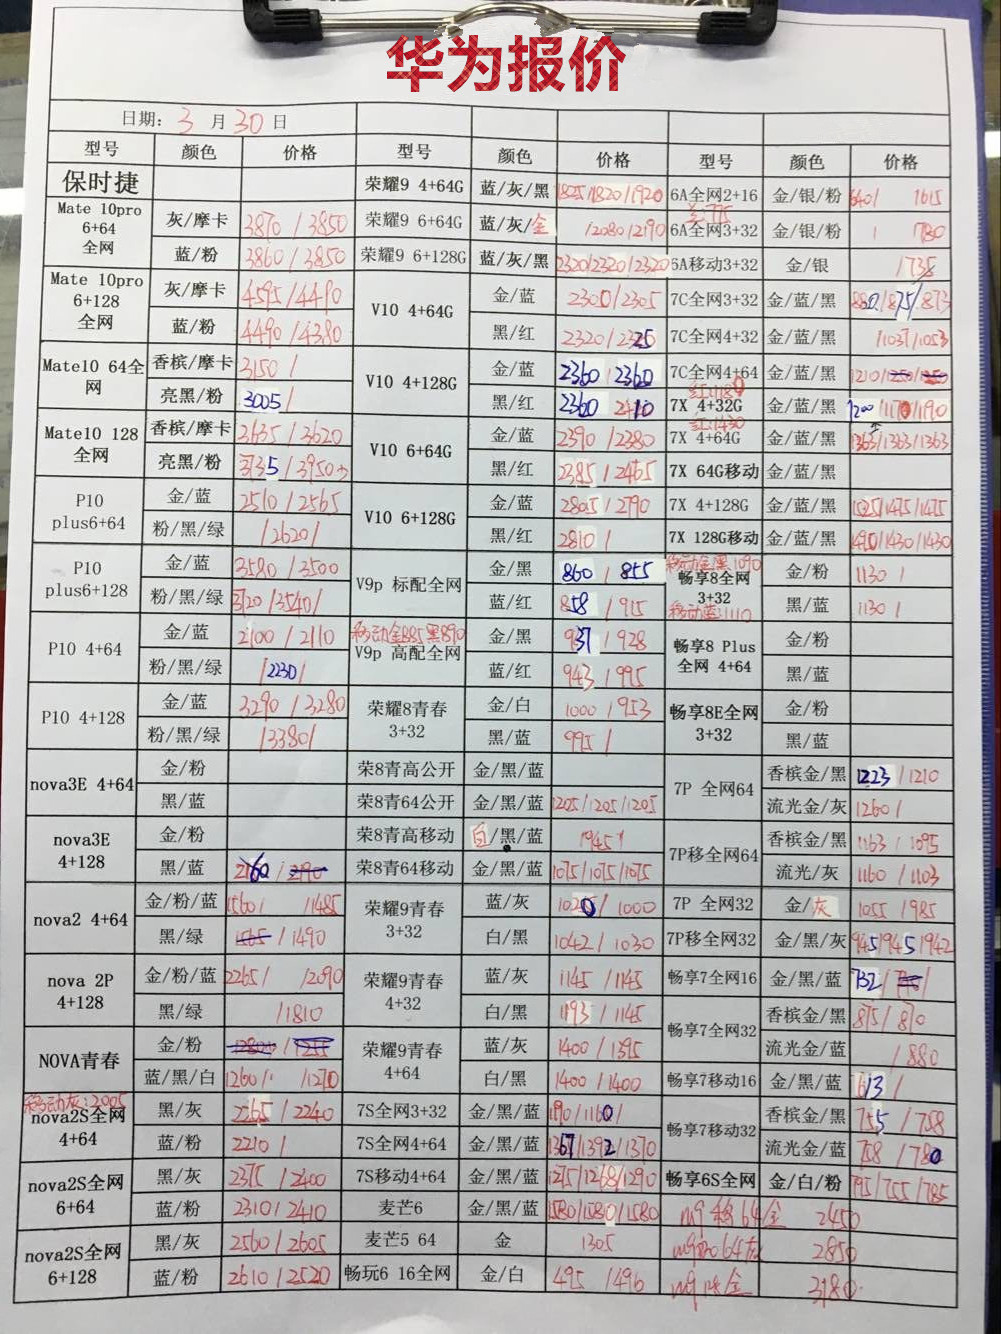 华为报价
日期: 3 月 30 日
型号 颜色 价格 型号 颜色 价格 型号 颜色 价格
保时捷 荣耀9 4+64G 蓝/灰/黑 1825/1820/1920 6A全网2+16 金/银/粉 640/ 1615
Mate 10pro 6+64 全网 灰/摩卡 3870 / 3850 荣耀9 6+64G 蓝/灰/金 /2080/2190 6A全网3+32 金/银/粉 / 780
蓝/粉 3860 / 3850 荣耀9 6+128G 蓝/灰/黑 2320/2320/2320 6A移动3+32 金/银 /735
Mate 10pro 6+128 全网 灰/摩卡 4595/4490 V10 4+64G 金/蓝 2300/2305 7C全网3+32 金/蓝/黑
蓝/粉 4490/4380 黑/红 2320/2325 7C全网4+32 金/蓝/黑 /1037/1053
Mate10 64全网 香槟/摩卡 3150 / V10 4+128G 金/蓝 2360 2360 7C全网4+64 金/蓝/黑 1210/
亮黑/粉 3005/ 黑/红 2360 2410 7X 4+32G 金/蓝/黑 1200/1170/1190
Mate10 128全网 香槟/摩卡 3635 / 3620 V10 6+64G 金/蓝 2390 / 2380 红:1430 7X 4+64G 金/蓝/黑 1363/1363/1363
亮黑/粉 黑/红 2385 / 2465 7X 64G移动 金/蓝/黑
P10 plus6+64 金/蓝 2510 / 2565 V10 6+128G 金/蓝 2805 / 2790 7X 4+128G 金/蓝/黑 1525/1475/1475
粉/黑/绿 /2620/ 黑/红 2810 / 7X 128G移动 金/蓝/黑 1490/1430/1430
P10 plus6+128 金/蓝 3580 / 3500 V9p 标配全网 金/黑 860 / 855 移动金黑1090 畅享8全网 3+32 移动蓝:1110 金/粉 1130 /
粉/黑/绿 3120/3540/ 蓝/红 858 / 915 黑/蓝 1130 /
P10 4+64 金/蓝 2100 / 2110 移动金885黑890 V9p 高配全网 金/黑 937 / 928 畅享8 Plus 全网 4+64 金/粉
粉/黑/绿 /2230/ 蓝/红 943 / 995 黑/蓝
P10 4+128 金/蓝 3290 / 3280 荣耀8青春 3+32 金/白 1000 / 953 畅享8E全网 3+32 金/粉
粉/黑/绿 /3380/ 黑/蓝 995 / 黑/蓝
nova3E 4+64 金/粉 荣8青高公开 金/黑/蓝 7P 全网64 香槟金/黑 1223 / 1210
黑/蓝 荣8青64公开 金/黑/蓝 1205/1205/1205 流光金/灰 1260 /
nova3E 4+128 金/粉 荣8青高移动 白/黑/蓝 /945/ 7P移全网64 香槟金/黑 1163 / 1095
黑/蓝 2160 / 荣8青64移动 金/黑/蓝 1075/1075/1075 流光/灰 1160 / 1103
nova2 4+64 金/粉/蓝 1560/ /1485 荣耀9青春 3+32 蓝/灰 1020/ 1000 7P 全网32 金/灰 1055 / 985
黑/绿 / 1490 白/黑 1042 / 1030 7P移全网32 金/黑/灰 945/945/942
nova 2P 4+128 金/粉/蓝 2265/ /2090 荣耀9青春 4+32 蓝/灰 1145 / 1145 畅享7全网16 金/黑/蓝 732/
黑/绿 /1810 白/黑 1193 / 1145 畅享7全网32 香槟金/黑 875 / 870
NOVA青春 金/粉 荣耀9青春 4+64 蓝/灰 1400 / 1395 流光金/蓝 / 880
蓝/黑/白 1260/ /1270 白/黑 1400 / 1400 畅享7移动16 金/黑/蓝 613 /
移动灰:2005 nova2S全网 4+64 黑/灰 2265 / 2240 7S全网3+32 金/黑/蓝 1190/1160/ 畅享7移动32 香槟金/黑 755 / 758
蓝/粉 2210 / 7S全网4+64 金/黑/蓝 1367/1392/1370 流光金/蓝 758 / 780
nova2S全网 6+64 黑/灰 2375 / 2400 7S移动4+64 金/黑/蓝 1275/1268/1290 畅享6S全网 金/白/粉 795/755/785
蓝/粉 2310/ 2410 麦芒6 金/黑/蓝 1580/1580/1580 m9 移64金 2450
nova2S全网 6+128 黑/灰 2560 / 2605 麦芒5 64 金 1305 m9pro 64灰 2850
蓝/粉 2610 / 2520 畅玩6 16全网 金/白 495 /496 3180